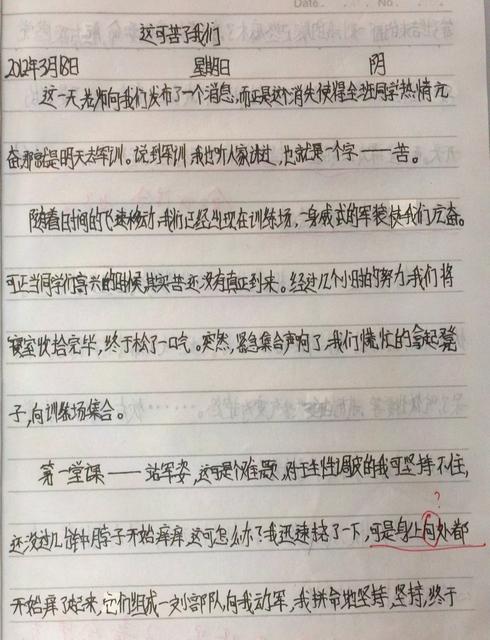 Date. No.
这可苦了我们
2012年3月18日 星期日 阴
这一天,老师向我们发布了一个消息,而正是这个消失使得全班同学热情亢
奋,那就是明天去军训。说到军训,我也听人家讲过,也就是一个字——苦。
随着日时间的飞速移动,我们已经出现在训练场,一身威武的军装使我们亢奋。
可正当同学们高兴的时候,其实苦还没有真正到来。经过几个小时的努力,我们将
寝室收拾完毕,终于松了一口气。突然,紧急集合声响了,我们慌忙的拿起凳
子,向训练场集合。
第一堂课——站军姿,这可是个难题,对于生性调皮的我可坚持不住,
?
还没过几分钟脖子开始痒痒,这可怎么办?我迅速挠了一下,可是身上向处都
开始痒了起来,它们组成一支小部队,向我动军,我拼命地坚持,坚持,终于